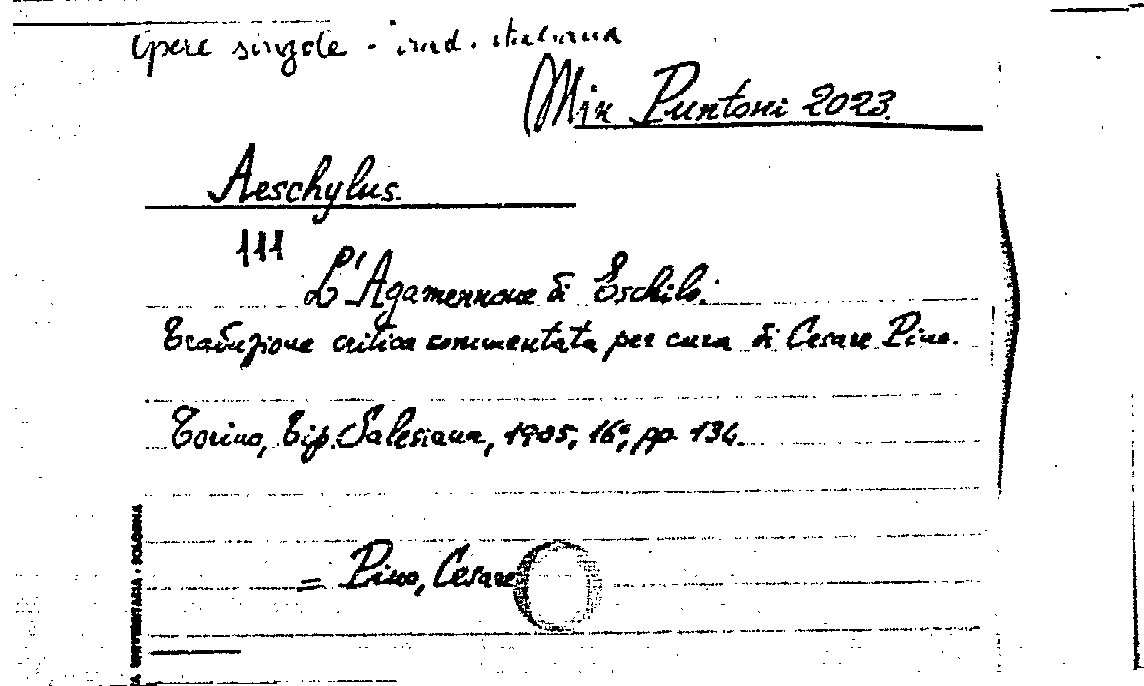 Opere singole - trad. italiana
Min Puntoni 2023.
Aeschylus.
111
L'Agamennone di Eschilo.
Traduzione critica commentata per cura di Cesare Pino.
Torino, Tip. Salesiana, 1905, 16°, pp. 134.
= Pino, Cesare
UNIVERSITARIA - BOLOGNA